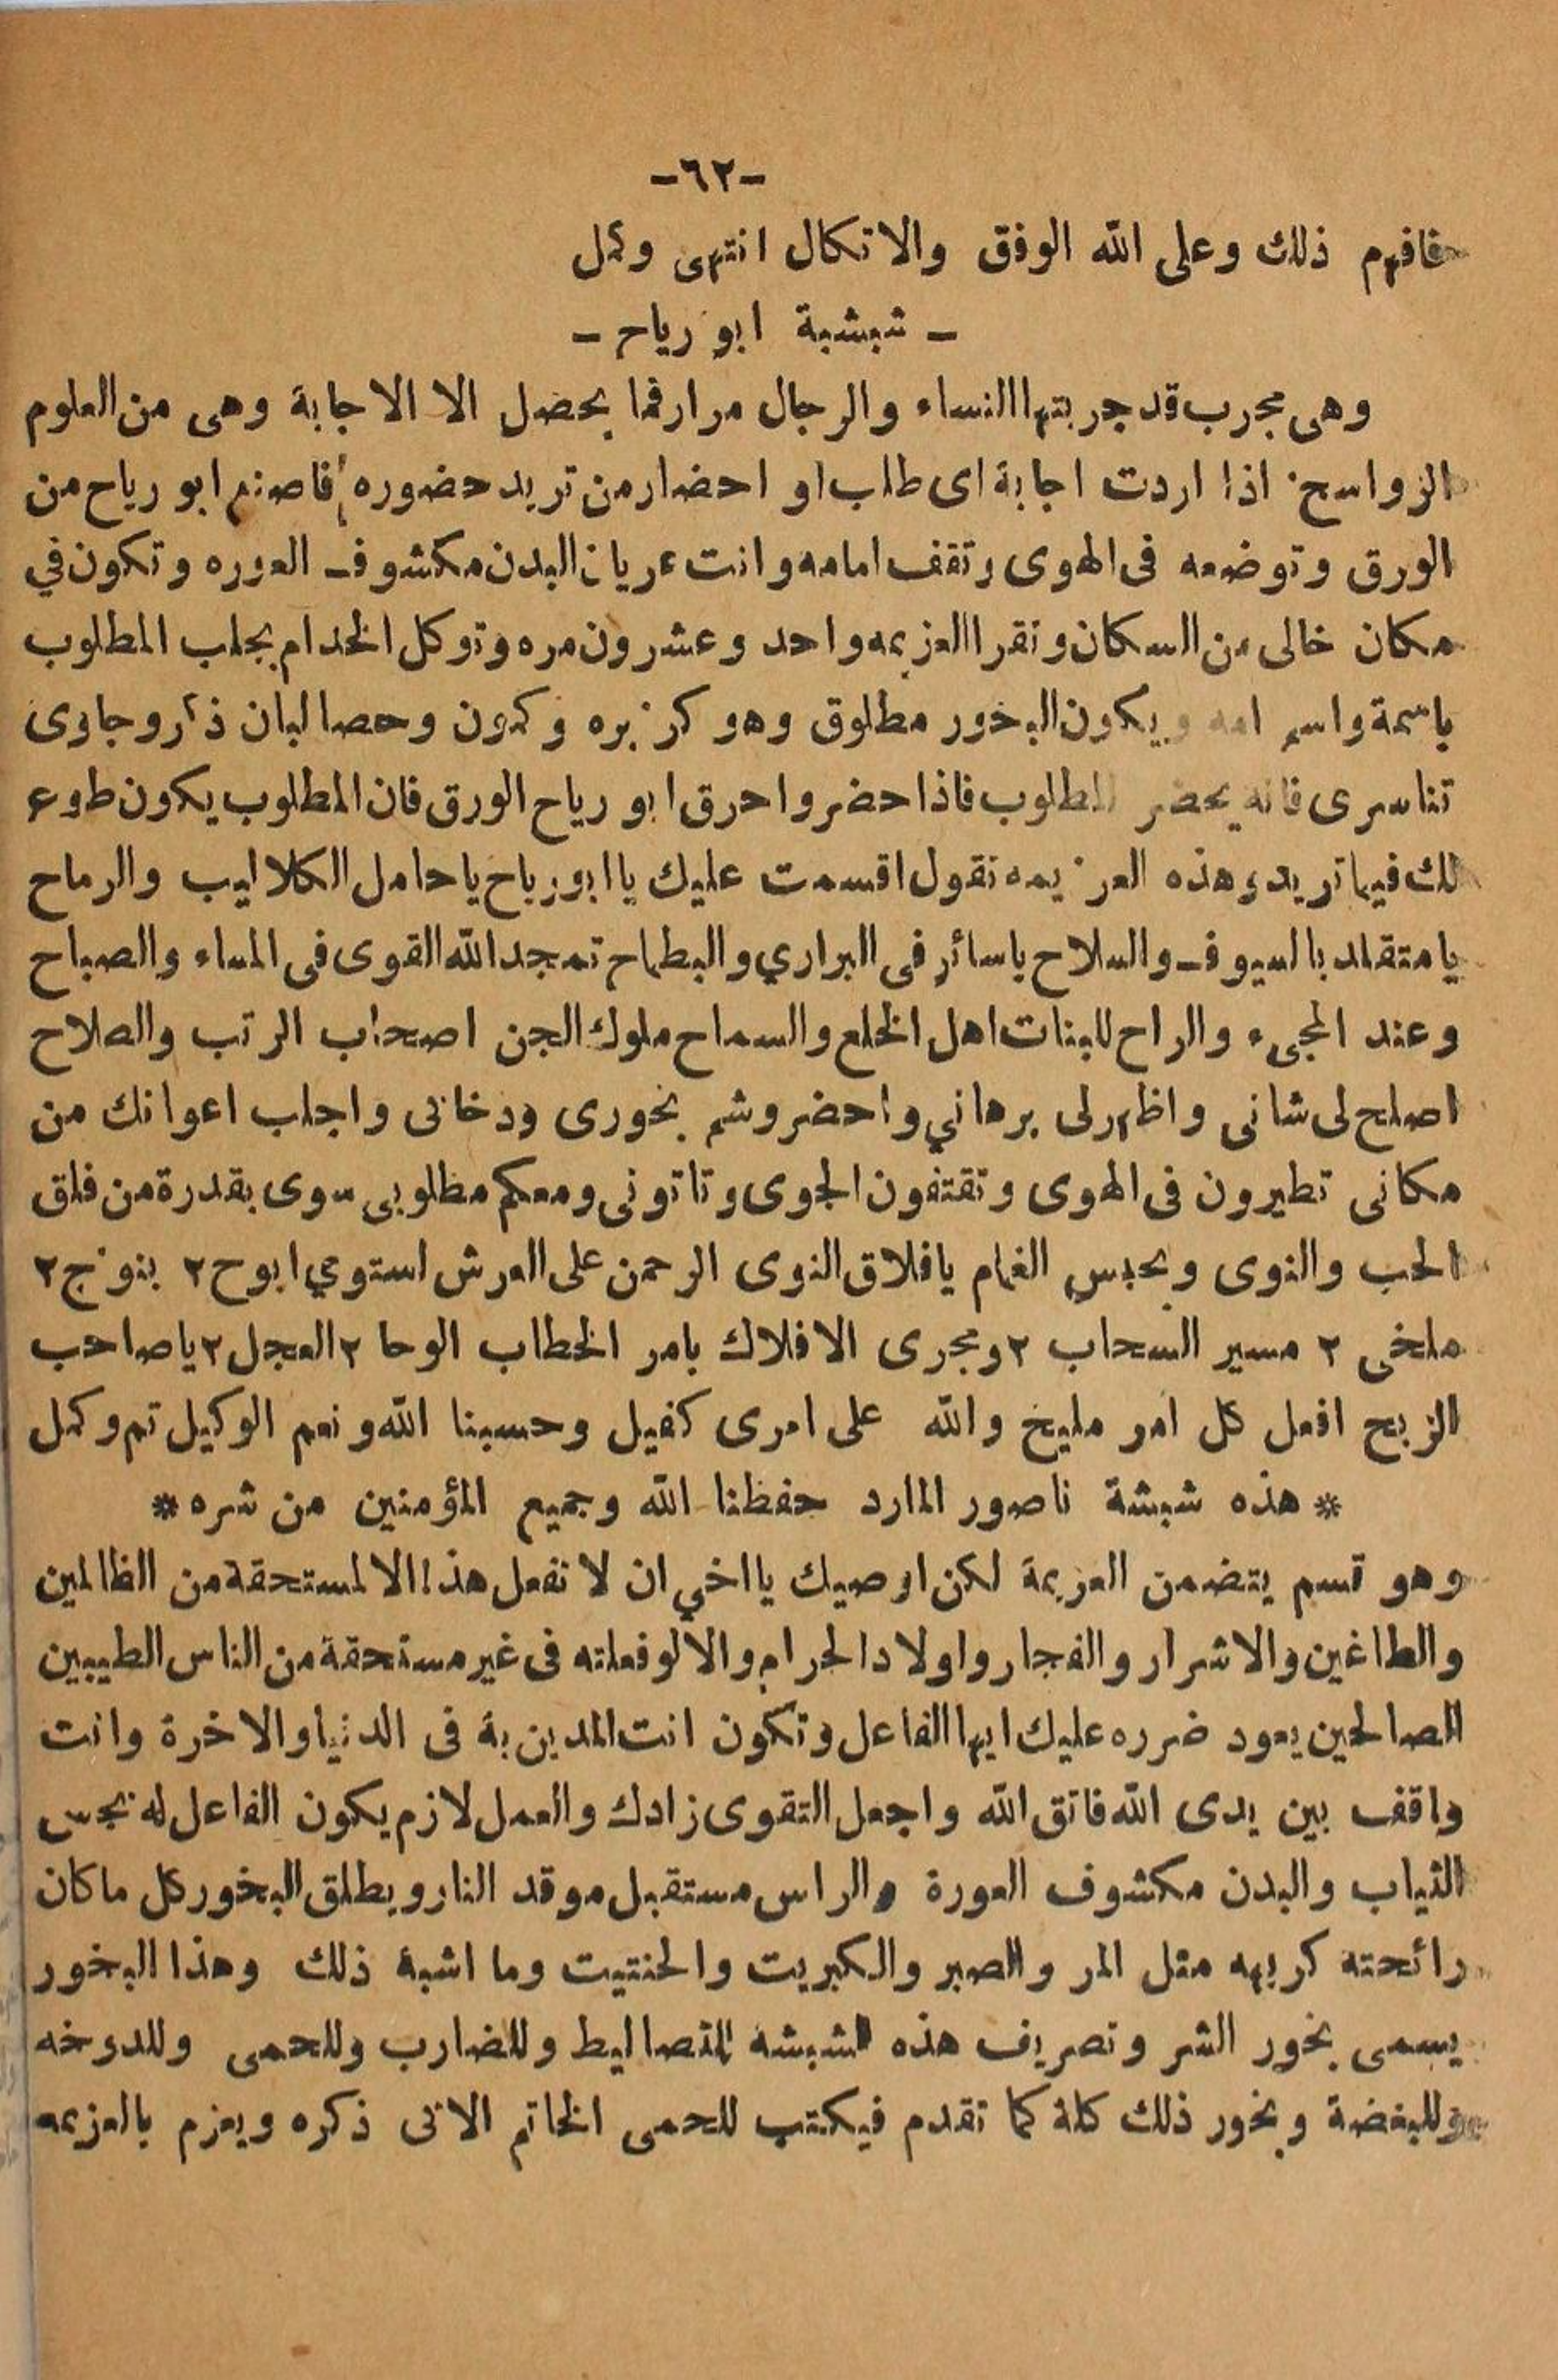 -٦٢-
فافهم ذلك وعلى الله الوفق والاتكال انتهى وكمل
- شبشبة ابو رياح -
وهى مجرب قد جربتها النساء والرجال مرارفما يحضل الا الاجابة وهى من العلوم
الزواسخ اذا اردت اجابة اى طلب او احضار من تريد حضوره فاصنع ابو رياح من
الورق وتوضعه فى الهوى وتقف امامه وانت عريان البدن مكشوف العوره وتكون في
مكان خالى من السكان وتقرا العزيمه واحد وعشرون مره وتوكل الخدام بجلب المطلوب
باسمة واسم امه ويكون البخور مطلوق وهو كزبره وكمون وحصا لبان ذكر وجاوى
تناسرى فانه يحضر المطلوب فاذا حضر واحرق ابو رياح الورق فان المطلوب يكون طوع
لك فيما تريد وهذه العزيمه تقول اقسمت عليك يا ابو رياح يا حامل الكلاليب والرماح
يا متقلد بالسيوف والسلاح ياسائر فى البراري والبطاح تمجد الله القوى فى المساء والصباح
وعند المجىء والراح للبنات اهل الخلع والسماح ملوك الجن اصحاب الرتب والصلاح
اصلح لى شانى واظهرلى برهاني واحضر وشم بخورى ودخانى واجلب اعوانك من
مكانى تطيرون فى الهوى وتقتفون الجوى وتاتونى ومعكم مطلوبى سوى بقدرة من فلق
الحب والنوى وبحبس الغمام يافلاق النوى الرحمن على العرش استوي ابوح ٢ بنوخ ٢
ملخى ٢ مسير السحاب ٢ ومجرى الافلاك بامر الخطاب الوحا ٢ العجل ٢ ياصاحب
الزبح افعل كل امر مليخ والله على امرى كفيل وحسبنا الله ونعم الوكيل تم وكمل
* هذه شبشة ناصور المارد حفظنا الله وجميع المؤمنين من شره *
وهو قسم يتضمن العزيمة لكن اوصيك يااخي ان لا تفعل هذا الا لمستحقة من الظالمين
والطاغين والاشرار والفجار واولاد الحرام والا لو فعلته فى غير مستحقة من الناس الطيبين
الصالحين يعود ضرره عليك ايها الفاعل وتكون انت المدين بة فى الدنيا والاخرة وانت
واقف بين يدى الله فاتق الله واجعل التقوى زادك والعمل لازم يكون الفاعل له نجس
الثياب والبدن مكشوف العورة والراس مستقبل موقد النار ويطلق البخور كل ماكان
رائحته كريهه مثل المر والصبر والكبريت والحنتيت وما اشبة ذلك وهذا البخور
يسمى بخور الشر وتصريف هذه الشبشه للتصاليط وللضارب وللحمى وللدوخه
وللبغضة وبخور ذلك كلة كما تقدم فيكتب للحمى الخاتم الاتى ذكره ويعزم بالعزيمه